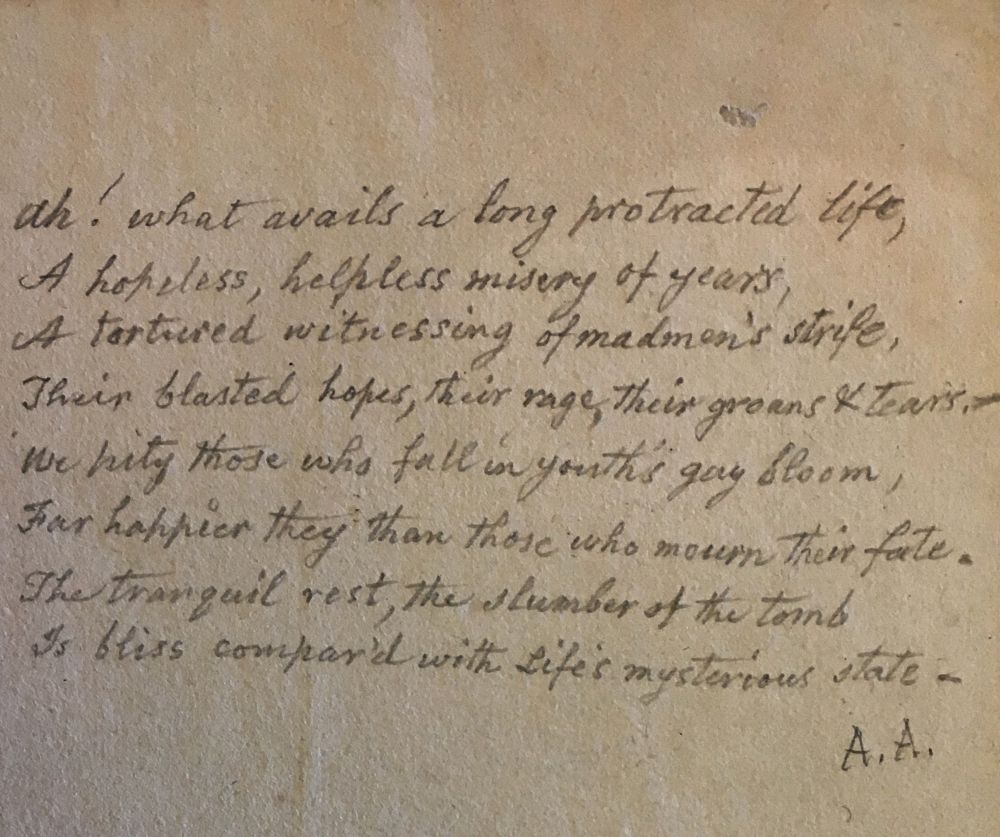 Ah! what avails a long protracted life,
A hopeless, helpless misery of years,
A tortured witnessing of madmen's strife,
Their blasted hopes, their rage, their groans & tears. -
We pity those who fall in youth's gay bloom,
Far happier they than those who mourn their fate.
The tranquil rest, the slumber of the tomb
Is bliss compar'd with Life's mysterious state -
A.A.